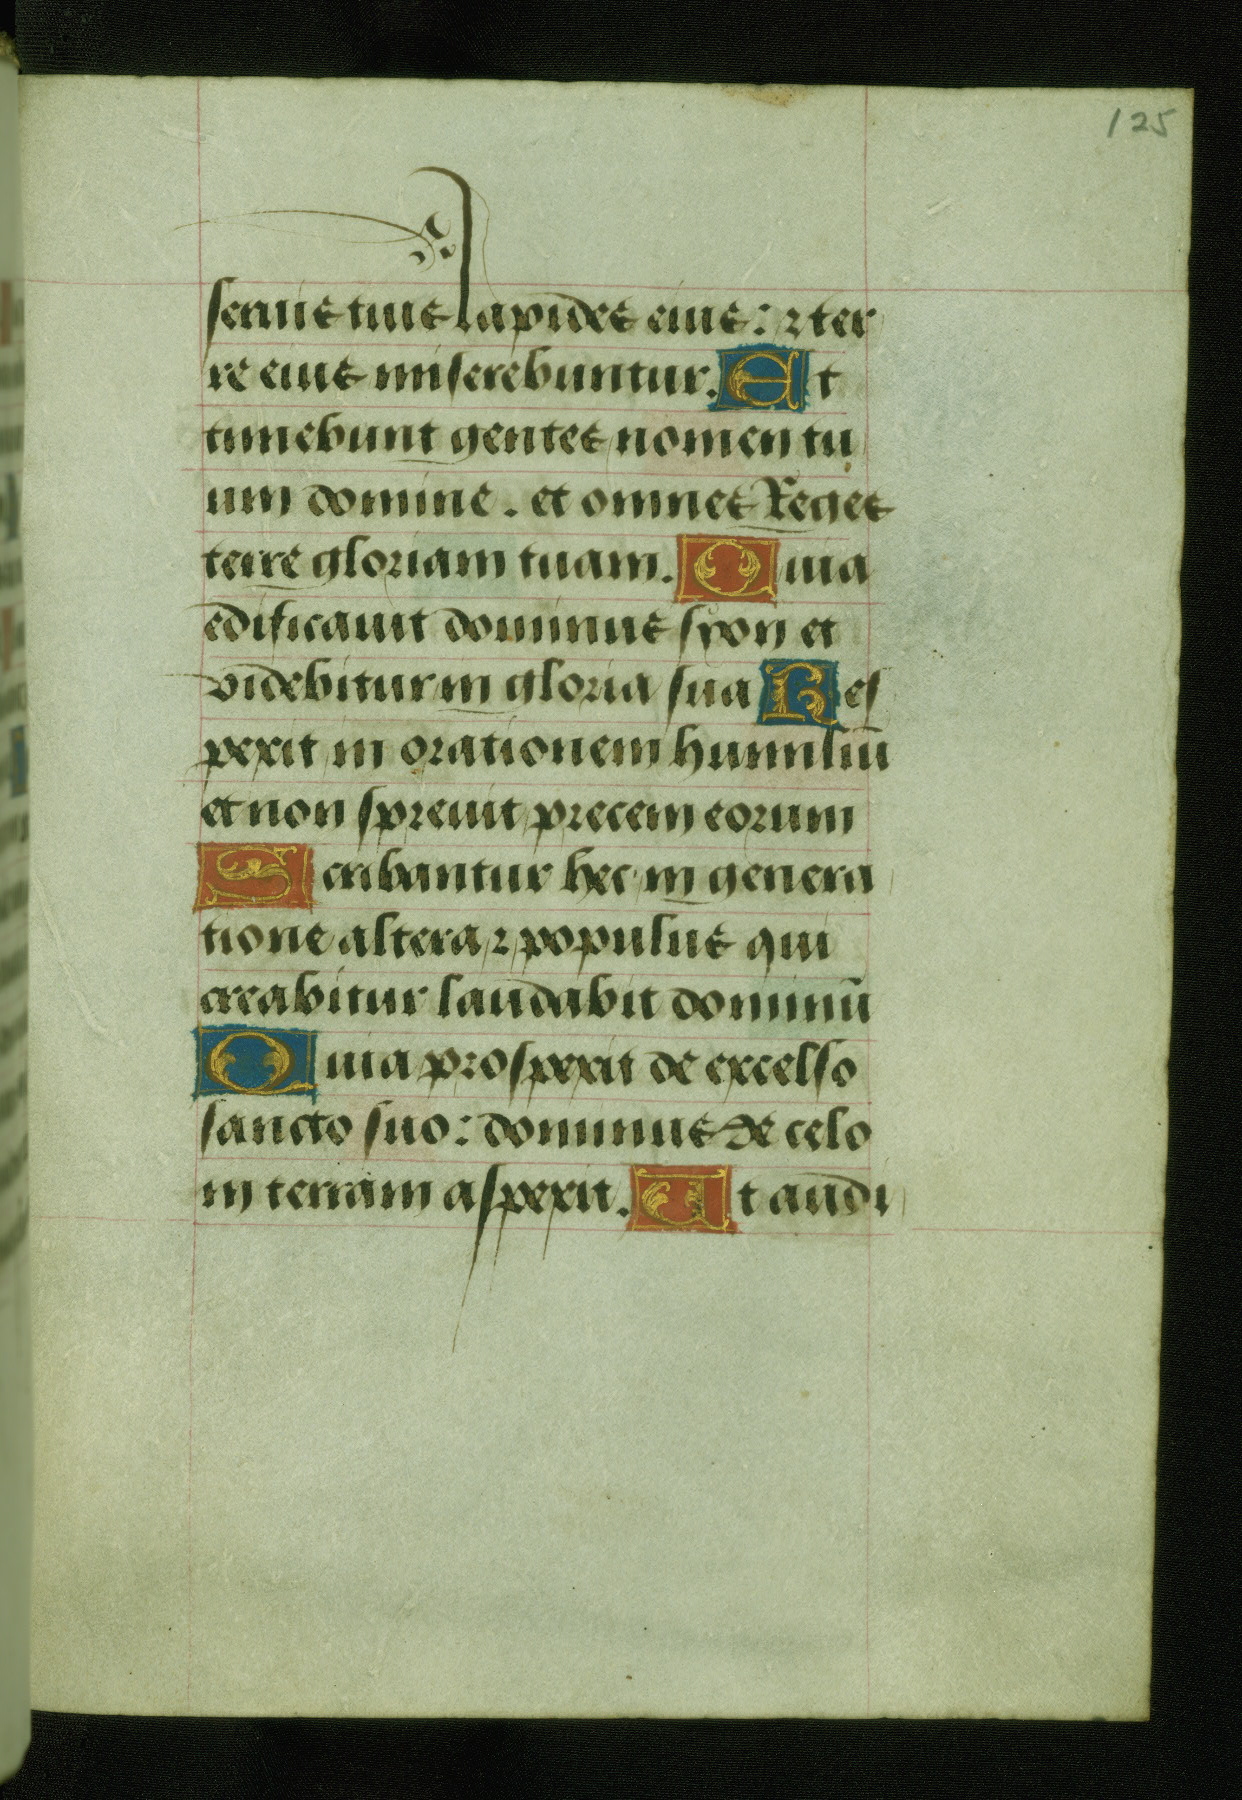 125
seruis tuis lapides eius: ⁊ ter
re eius miserebuntur. Et
timebunt gentes nomen tu
um domine. et omnes Reges
terre gloriam tuam. Quia
edificauit dominus syon et
videbitur in gloria sua Res
pexit in orationem humiliū
et non spreuit precem eorum
Scribantur hec in genera
tione altera ⁊ populus qui
creabitur laudabit dominū
Quia prospexit de excelso
sancto suo: dominus de celo
in terram aspexit. Ut audi